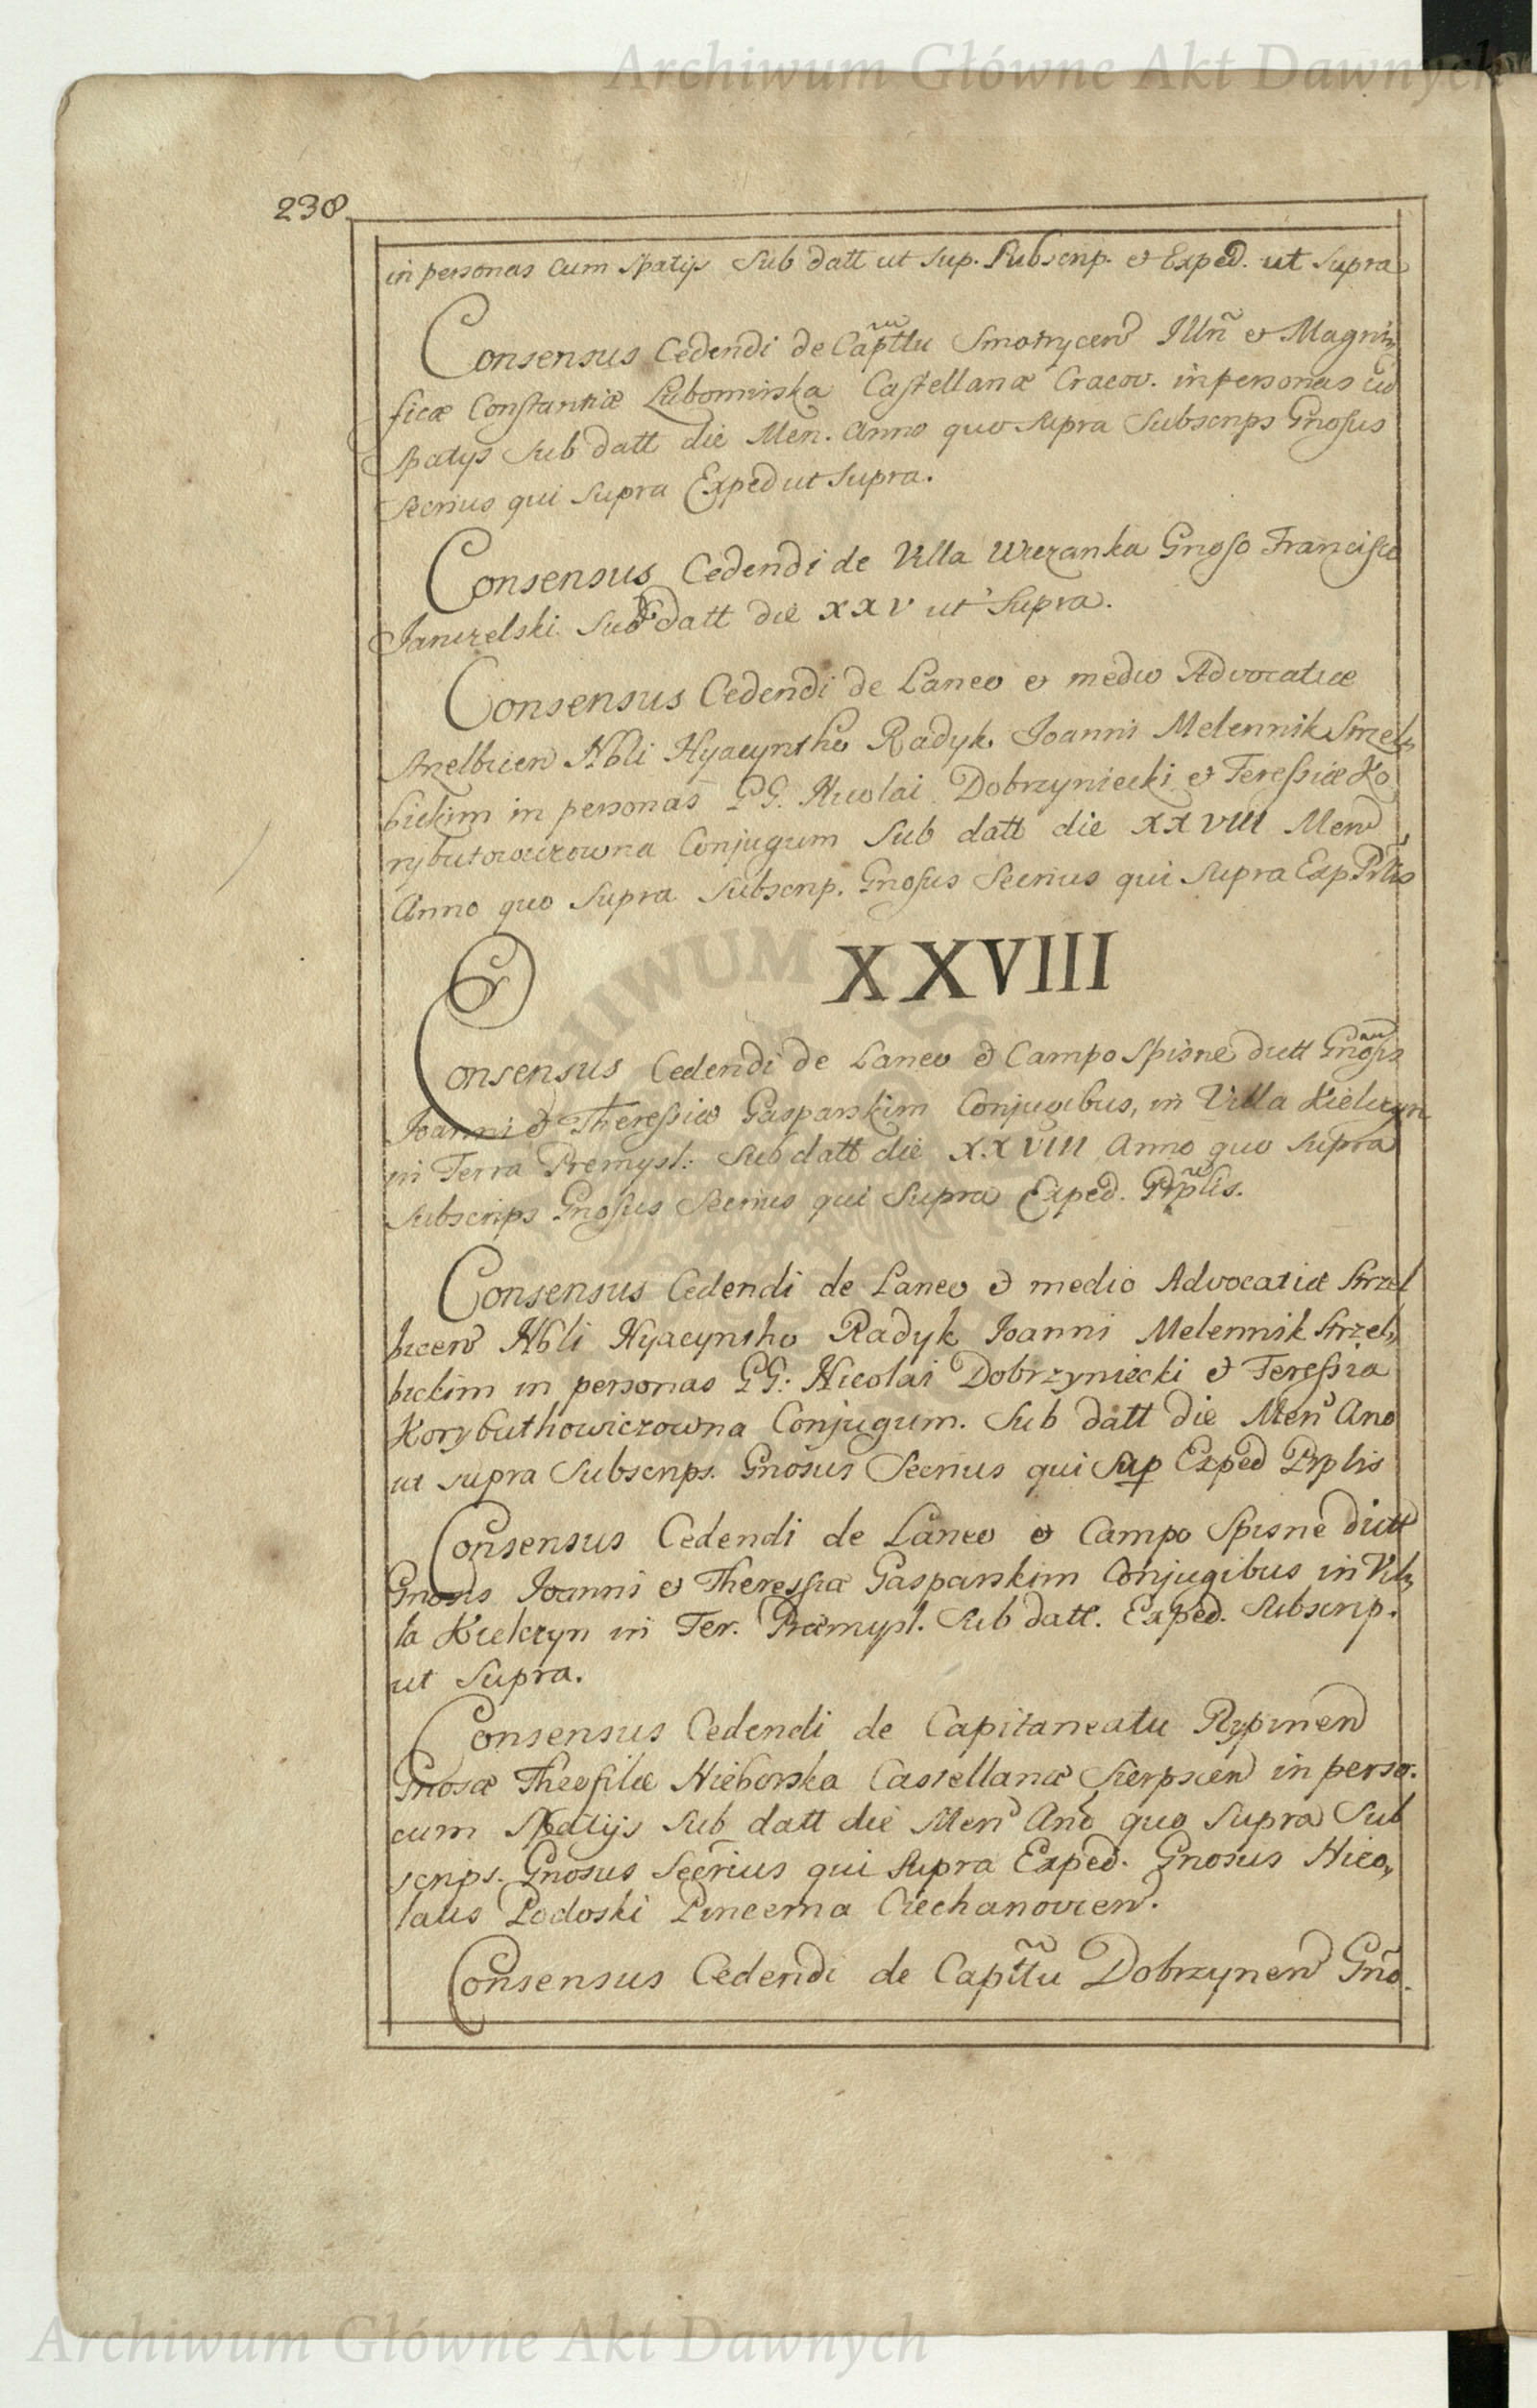 Archiwum Główne Akt Dawnych
238
in personas cum Spatijs Sub datt ut Sup. Subscrip. et Exped. ut Supra
Consensus Cedendi de Capttu Smotrycen Illñ et Magni„
ficæ Constantiæ Lubomirska Castellanæ Cracov. in personas cũ
Spatijs Sub datt die Men. Anno quo Supra Subscrips Gnosus
Secrius qui Supra Exped ut Supra.
Consensus Cedendi de Villa Gnoso Francisco
Sub datt die XXV ut Supra.
Consensus Cedendi de Laneo et medio Advocatiæ
Strzelbicen Nbli Hyacyntho Radyk Joanni Melennik Strzel„
bickim in personas GG. Nicolai Dobrzyniecki et Teressiæ Ko„
rybutowiczowna Conjugum Sub datt die XXVIII Men
Anno quo Supra Subscrip. Gnosus Secrius qui Supra Exp Prlis
XXVIII
Consensus Cedendi de Laneo et Campo Spisne dictt Gnosis
Joanni et Theressiæ Gasparskim Conjugibus, in Villa Kielczyn
in Terra Premysl: Sub datt die XXVIII Anno quo Supra
Subscrips Gnosus Secrius qui Supra Exped. Prplis.
Consensus Cedendi de Laneo et medio Advocatiæ Strzel
bicen Nbli Hyacyntho Radyk Joanni Melennik Strzel„
bickim in personas GG: Nicolai Dobrzyniecki et Teressia
Korybuthowiczowna Conjugum. Sub datt die Men Ano
ut supra Subscrips. Gnosus Secrius qui Sup Exped Prplis
Consensus Cedendi de Laneo et Campo Spisne dictt
Gnosis Joanni et Theressiæ Gasparskim Conjugibus in Vil„
la Kielczyn in Ter. Præmysl. Sub datt. Exped. Subscrip.
ut Supra.
Consensus Cedendi de Capitaneatu Rypinen
Gnosæ Theofilæ Nieborska Castellanæ Sierpscen in perso.
cum Spatijs Sub datt die Men Ano quo Supra Sub
scrips. Gnosus Secrius qui Supra Exped. Gnosus Nico„
laus Podoski Pincerna Ciechanovien.
Consensus Cedendi de Capttu Dobrzynen Gno.
Archiwum Główne Akt Dawnych